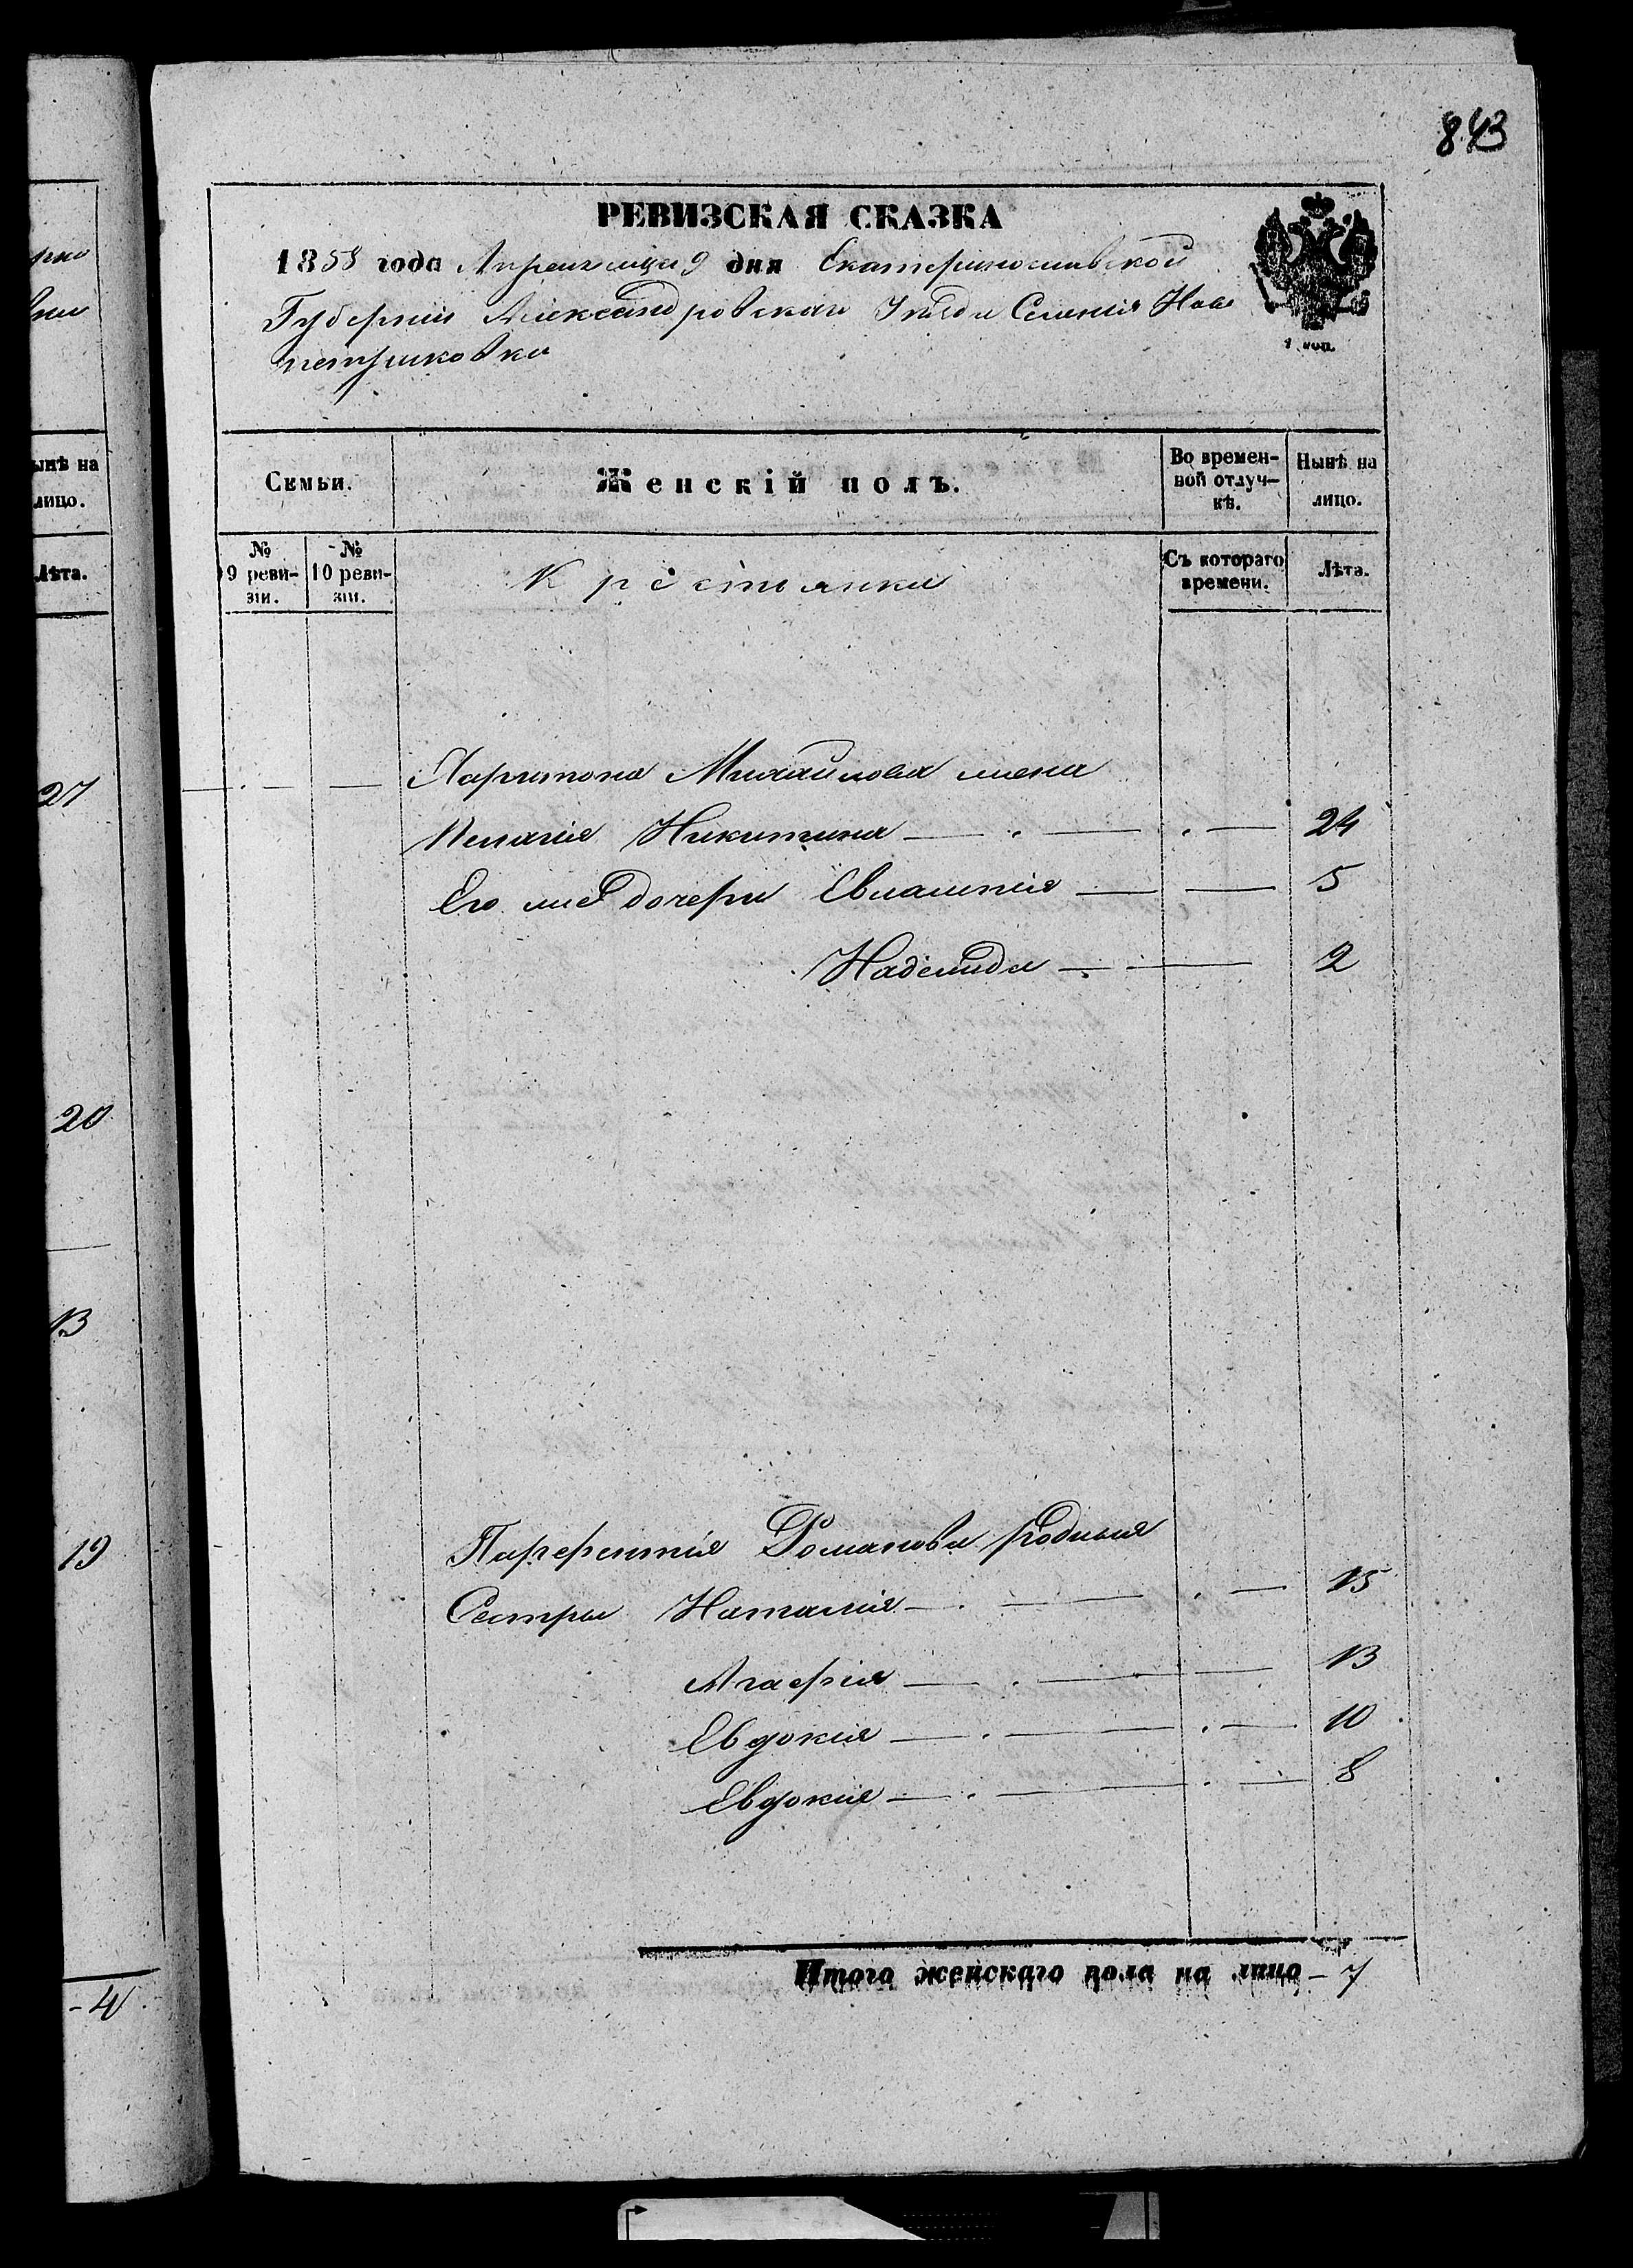 рко
843
РЕВИЗСКАЯ СКАЗКА
1858 года Апреля месяца 9 дня Екатеринославской
Губерніи Александровскаго Уезда Селенія Ново
петриковки
1 коп.
ынѣ на
лицо.
Лѣта.
Семьи.
Женскій полъ.
Во времен-
ной отлуч-
кѣ.
Нынѣ на
лицо.
№
9 реви-
зіи.
№
10 реви-
зіи.
Крестьянки
Съ котораго
времени.
Лѣта.
27
Харитона Михайлова жена
Пелагія Никитина 24
Его же дочери Евлампія 5
Надежда 2
20
13
19
Парфентія Романова родныя
Сестры Наталія 15
Агафія 13
Евдокія 10
Евдокія 8
Итого женскаго пола на лицо - 7
- 4